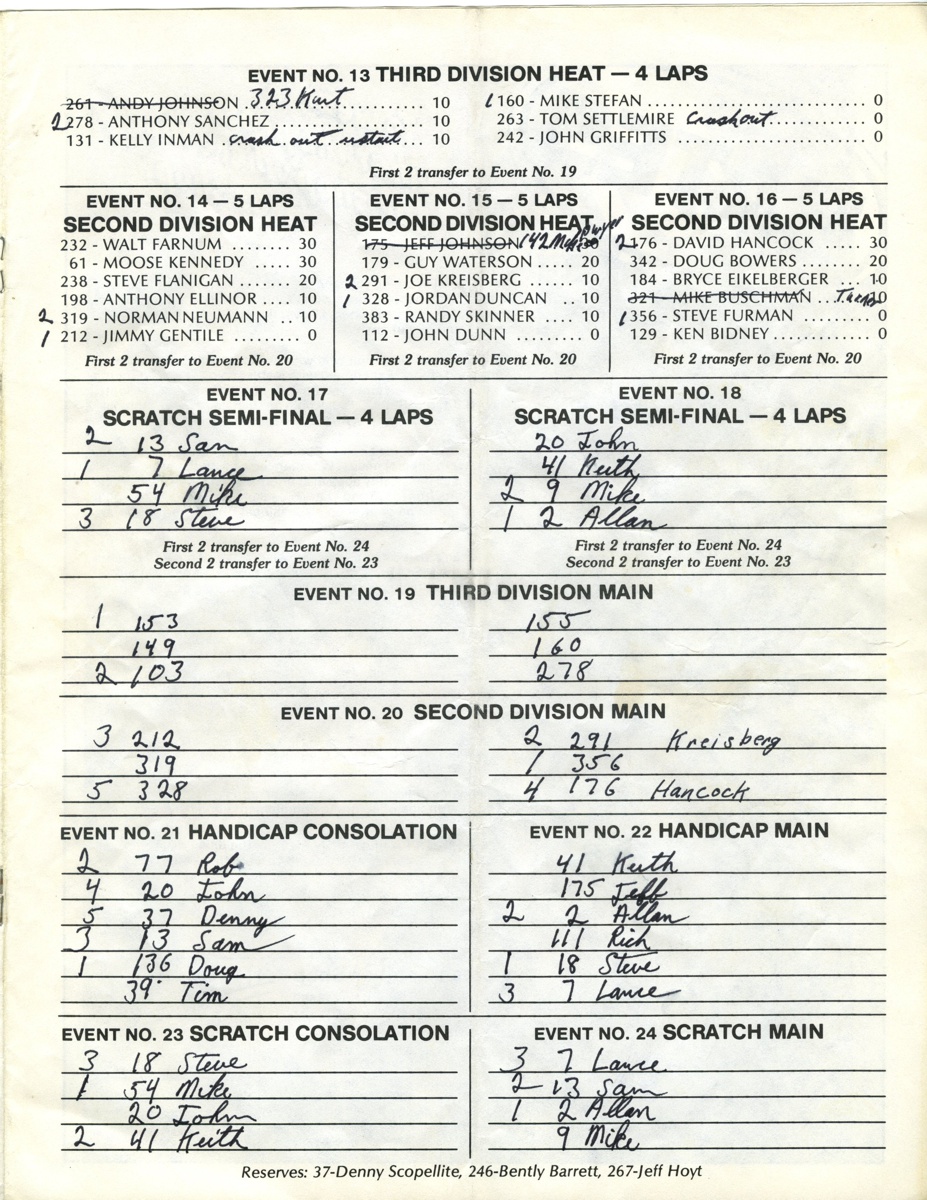 EVENT NO. 13 THIRD DIVISION HEAT — 4 LAPS
261 - ANDY JOHNSON 323 Kurt 10
2 278 - ANTHONY SANCHEZ 10
131 - KELLY INMAN crash out restart 10
1 160 - MIKE STEFAN 0
263 - TOM SETTLEMIRE Crashout 0
242 - JOHN GRIFFITTS 0
First 2 transfer to Event No. 19
EVENT NO. 14 — 5 LAPS
SECOND DIVISION HEAT
232 - WALT FARNUM 30
61 - MOOSE KENNEDY 30
238 - STEVE FLANIGAN 20
198 - ANTHONY ELLINOR 10
2 319 - NORMAN NEUMANN 10
1 212 - JIMMY GENTILE 0
First 2 transfer to Event No. 20
EVENT NO. 15 — 5 LAPS
SECOND DIVISION HEAT
175 - JEFF JOHNSON 142 30
179 - GUY WATERSON 20
2 291 - JOE KREISBERG 10
1 328 - JORDAN DUNCAN 10
383 - RANDY SKINNER 10
112 - JOHN DUNN 0
First 2 transfer to Event No. 20
EVENT NO. 16 — 5 LAPS
SECOND DIVISION HEAT
2 176 - DAVID HANCOCK 30
342 - DOUG BOWERS 20
184 - BRYCE EIKELBERGER 10
321 - MIKE BUSCHMAN
1 356 - STEVE FURMAN 0
129 - KEN BIDNEY 0
First 2 transfer to Event No. 20
EVENT NO. 17
SCRATCH SEMI-FINAL — 4 LAPS
2 13 Sam
1 7 Lance
54 Mike
3 18 Steve
First 2 transfer to Event No. 24
Second 2 transfer to Event No. 23
EVENT NO. 18
SCRATCH SEMI-FINAL — 4 LAPS
20 John
41 Keith
2 9 Mike
1 2 Allan
First 2 transfer to Event No. 24
Second 2 transfer to Event No. 23
EVENT NO. 19 THIRD DIVISION MAIN
1 153
149
2 103
155
160
278
EVENT NO. 20 SECOND DIVISION MAIN
3 212
319
5 328
2 291 Kreisberg
1 356
4 176 Hancock
EVENT NO. 21 HANDICAP CONSOLATION
2 77 Rob
4 20 John
5 37 Denny
3 13 Sam
1 136 Doug
39 Tim
EVENT NO. 22 HANDICAP MAIN
41 Keith
175 Jeff
2 2 Allan
111 Rich
1 18 Steve
3 7 Lance
EVENT NO. 23 SCRATCH CONSOLATION
3 18 Steve
1 54 Mike
20 John
2 41 Keith
EVENT NO. 24 SCRATCH MAIN
3 7 Lance
2 13 Sam
1 2 Allan
9 Mike
Reserves: 37-Denny Scopellite, 246-Bently Barrett, 267-Jeff Hoyt